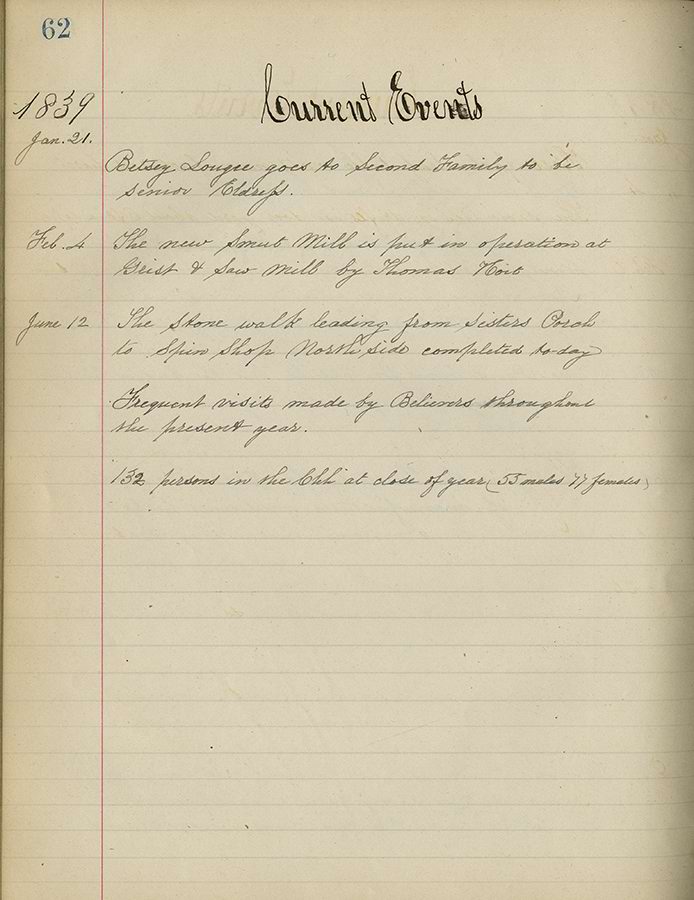 62
1839
Current Events
Jan. 21.
Betsey Lougee goes to Second Family to be
senior Eldress.
Feb. 4 The new Smut Mill is put in operation at
Grist & Saw Mill by Thomas Hoit
June 12 The Stone walk leading from Sisters Porch
to Spin Shop North side completed to-day
Frequent visits made by Believers throughout
the present year.
132 persons in the Chh at close of year (55 males 77 females)